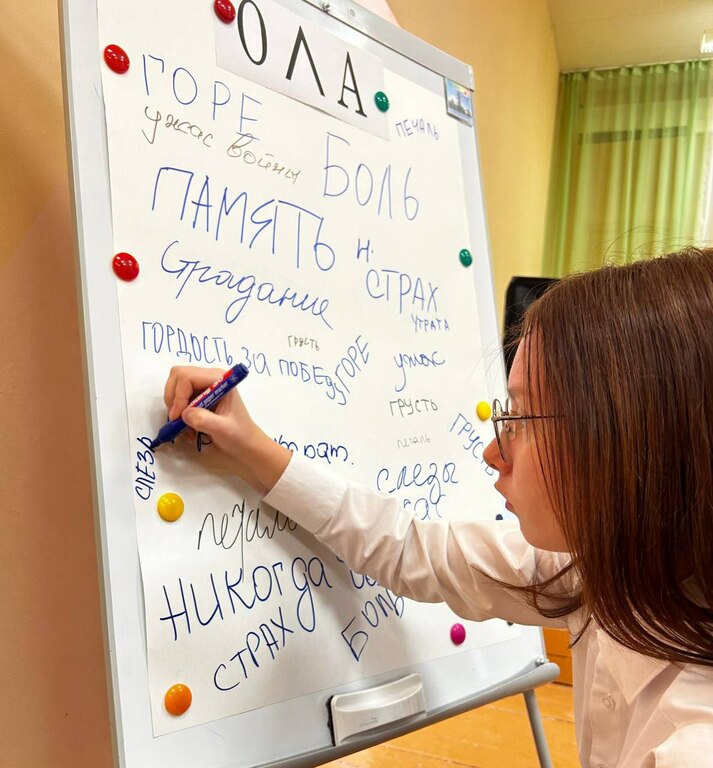 ОЛА
ГОРЕ
ПЕЧАЛЬ
ужас войны
БОЛЬ
ПАМЯТЬ
н.
СТРАХ
Страдание
УТРАТА
ГОРДОСТЬ ЗА ПОБЕДУ
грусть
ГОРЕ
ужас
ГРУСТЬ
ГРУСТЬ
печаль
слезы
СЛЕЗЫ
НИКОГДА
СТРАХ
БОЛЬ